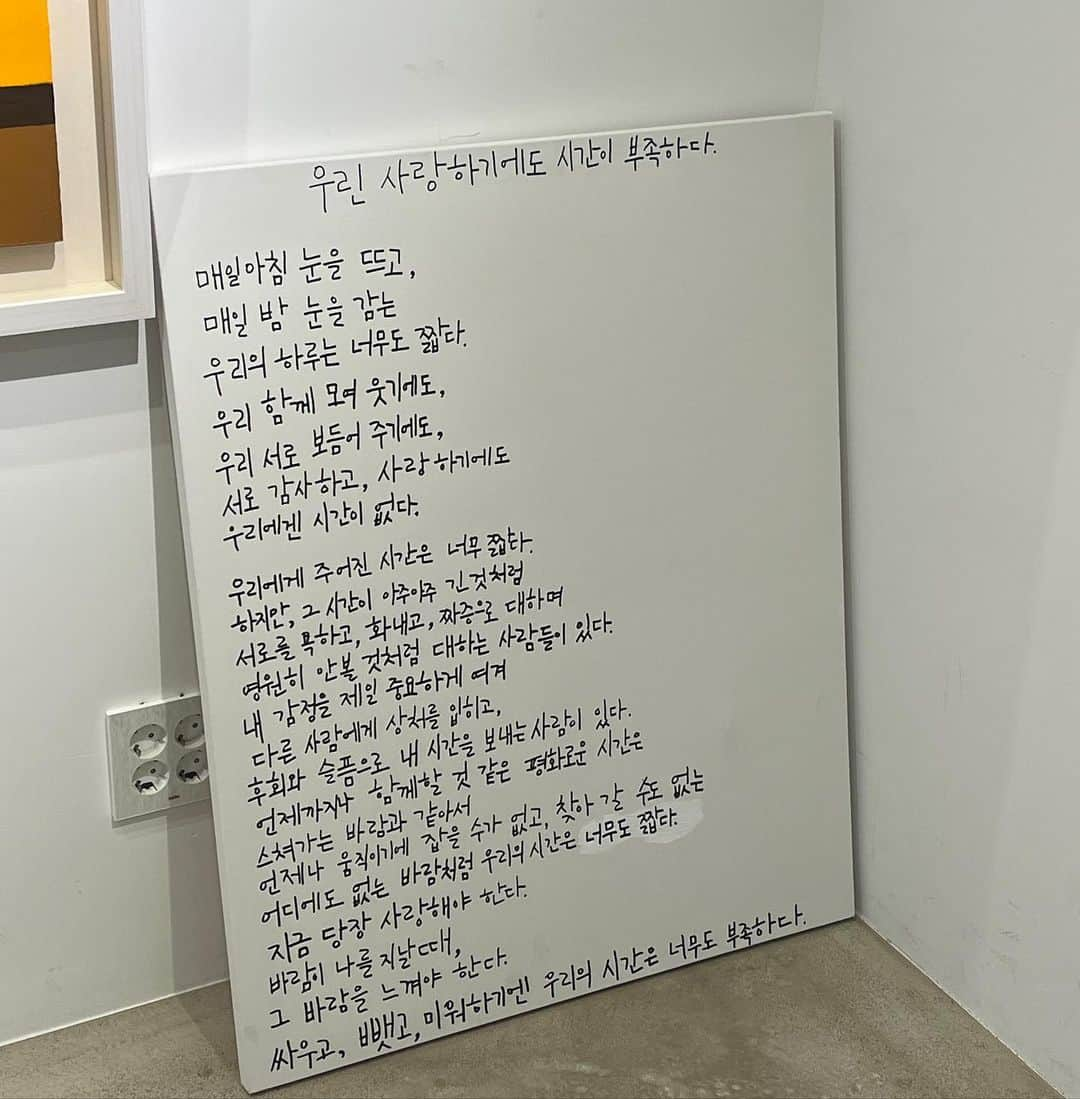 우린 사랑하기에도 시간이 부족하다.
매일아침 눈을 뜨고,
매일 밤 눈을 감는
우리의 하루는 너무도 짧다.
우리 함께 모여 웃기에도,
우리 서로 보듬어 주기에도,
서로 감사하고, 사랑하기에도
우리에겐 시간이 없다.
우리에게 주어진 시간은 너무 짧다.
하지만, 그 시간이 아주아주 긴것처럼
서로를 욕하고, 화내고, 짜증으로 대하며
영원히 안볼 것처럼 대하는 사람들이 있다.
내 감정을 제일 중요하게 여겨
다른 사람에게 상처를 입히고,
후회와 슬픔으로 내 시간을 보내는 사람이 있다.
언제까지나 함께할 것 같은 평화로운 시간은
스쳐가는 바람과 같아서
언제나 움직이기에 잡을 수가 없고, 찾아 갈 수도 없는
어디에도 없는 바람처럼 우리의 시간은 너무도 짧다
지금 당장 사랑해야 한다.
바람이 나를 지날때,
그 바람을 느껴야 한다.
싸우고, 뺏고, 미워하기엔 우리의 시간은 너무도 부족하다.